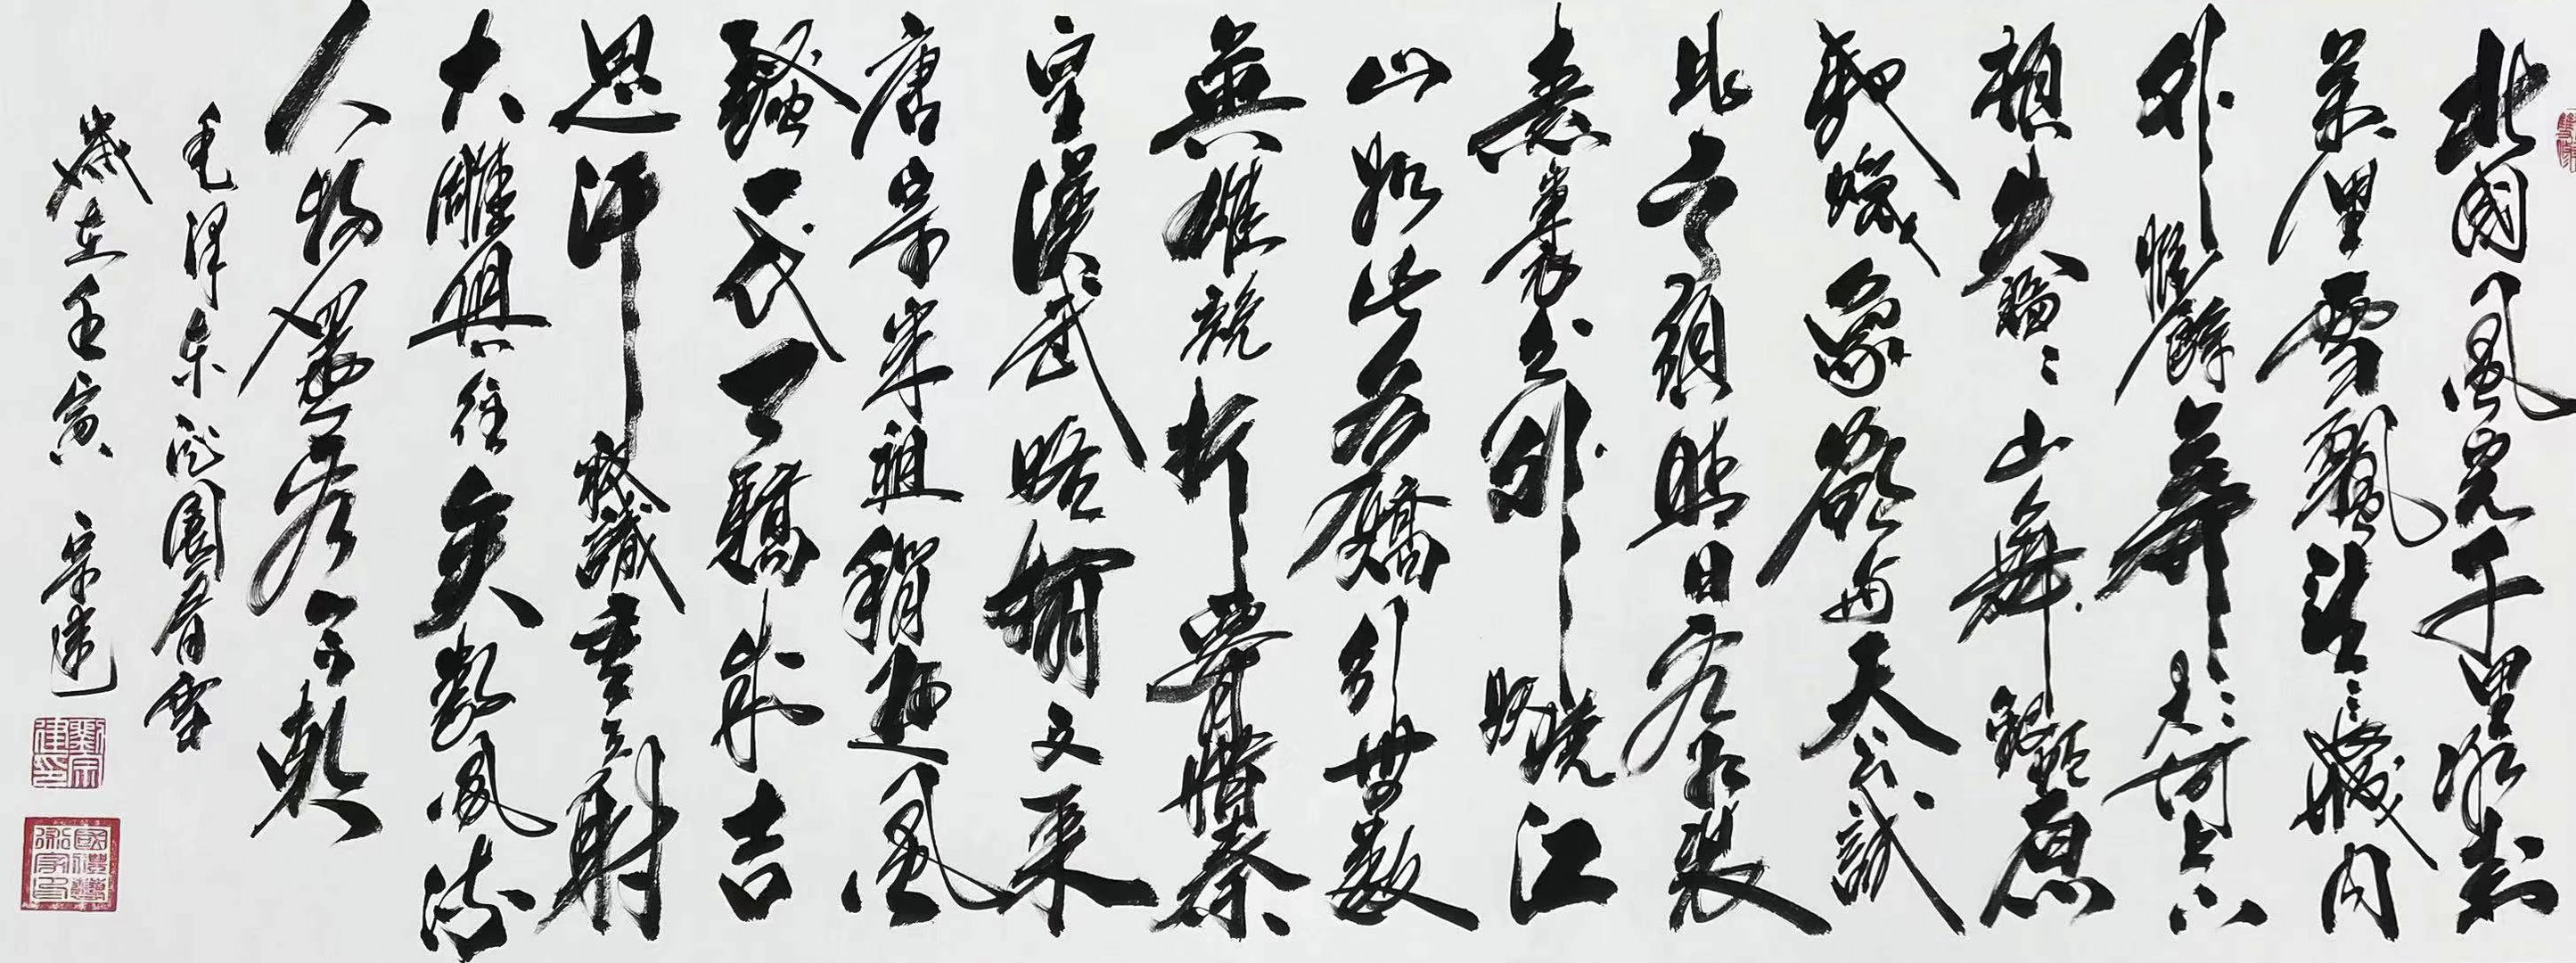 北國風光千里冰封
萬里雪飄望長城内
外惟餘莽々大河上下
頓失滔々山舞銀蛇原
馳蠟象欲与天公試
比高須晴日看紅裝
素裹分外妖嬈江
山如此多嬌引無数
英雄競折腰惜秦
皇漢武略輸文采
唐宗宋祖稍遜風
騷一代天驕成吉
思汗祗識彎弓射
大雕俱往矣数風流
人物還看今朝
毛澤东沁園春雪
歲在壬寅 宗建
鄭宗建印